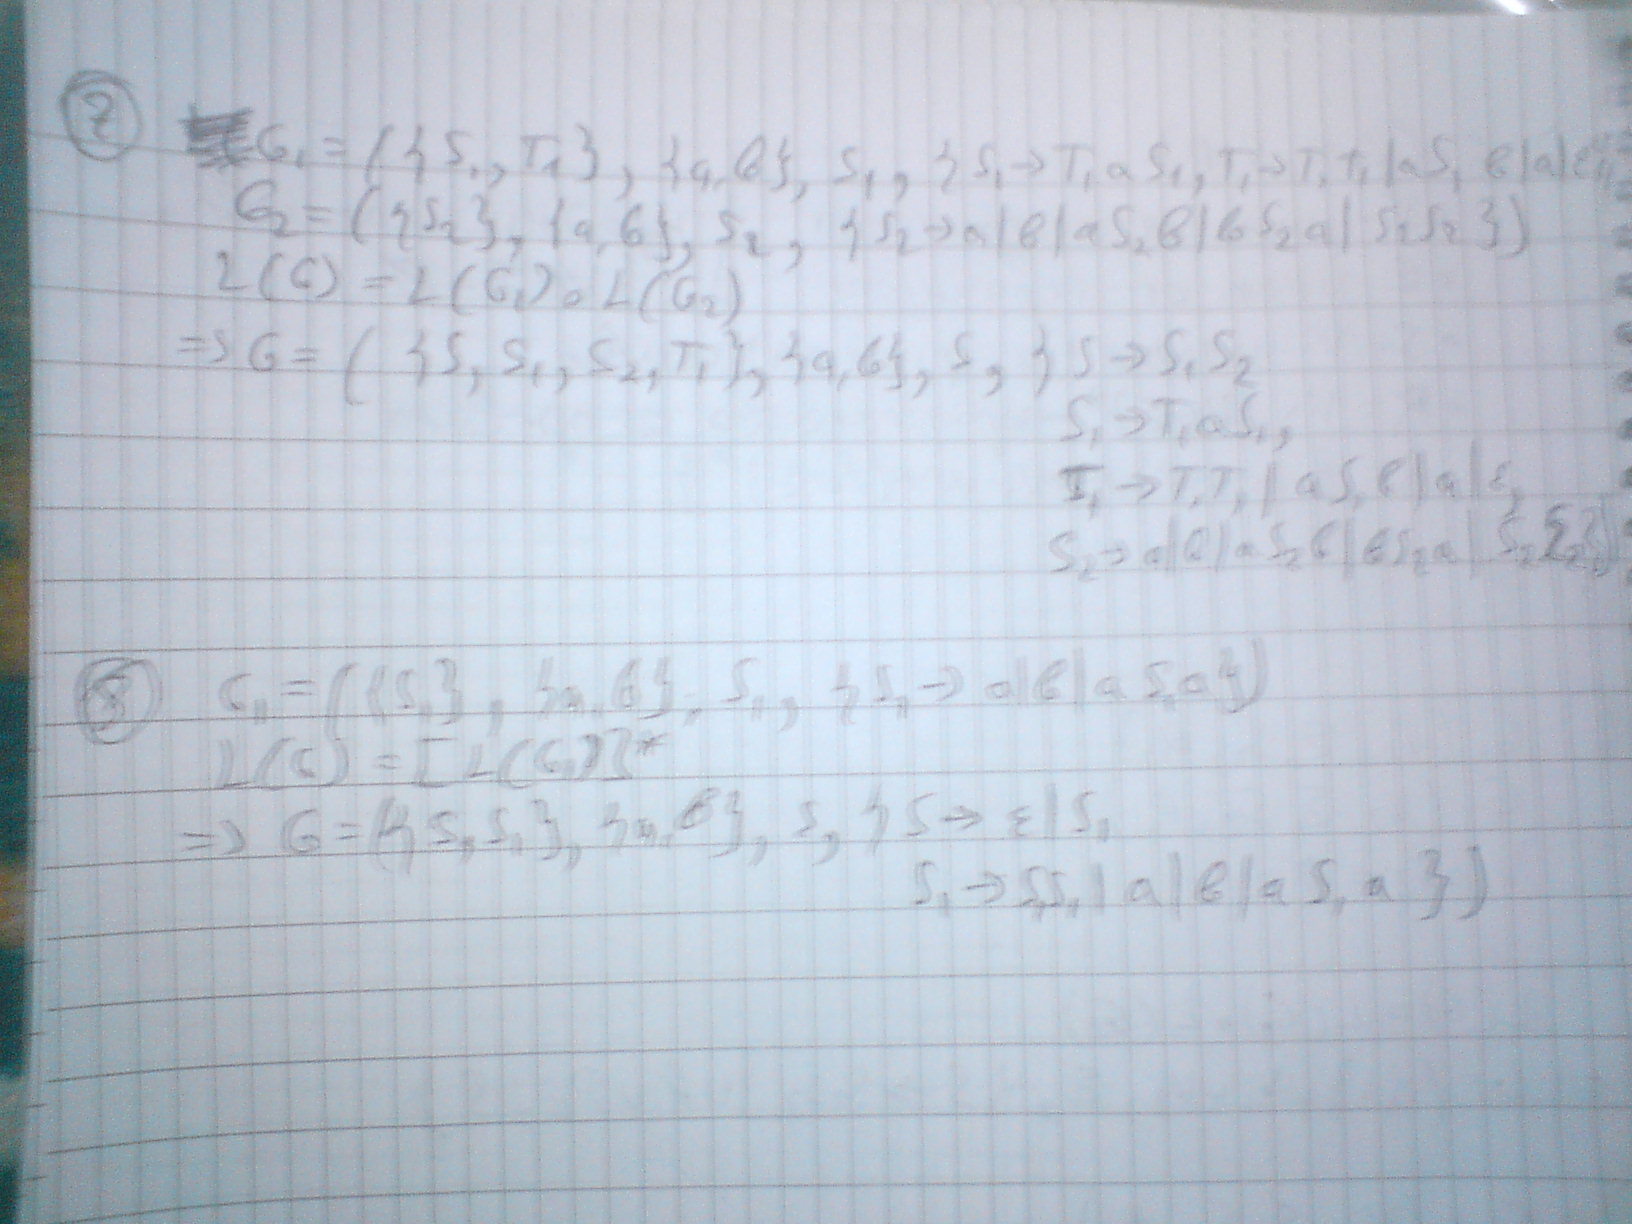 ② G₁ = ({S₁, T₁}, {a, b}, S₁, {S₁ → T₁aS₁, T₁ → T₁T₁ | aS₁b | a | ε
G₂ = ({S₂}, {a, b}, S₂, {S₂ → a | b | aS₂b | bS₂a | S₂S₂})
L(G) = L(G₁) ∘ L(G₂)
=> G = ({S, S₁, S₂, T₁}, {a, b}, S, {S → S₁S₂
S₁ → T₁aS₁,
T₁ → T₁T₁ | aS₁b | a | ε,
S₂ → a | b | aS₂b | bS₂a | S₂S₂})
G₁ = ({S₁}, {a, b}, S₁, {S₁ → a | b | aS₁a})
L(G) = [L(G₁)]*
=> G = ({S, S₁}, {a, b}, S, {S → ε | S₁
S₁ → S₁S₁ | a | b | aS₁a})